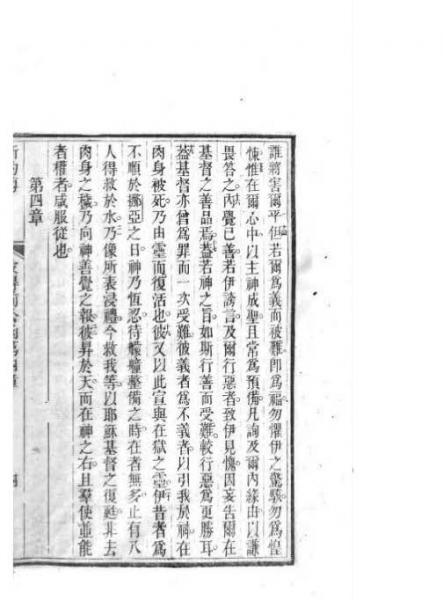 誰將害爾乎但若爾爲義而被難卽爲福勿懼伊之驚駭勿爲惶
悚惟在爾心中以主神成聖且常爲預備凡詢及爾內緣由以謙
畏答之內覺已善若伊謗言及爾行惡者致伊見愧因妄告爾在
基督之善品焉葢若神之旨如斯行善而受難較行惡爲更勝耳
葢基督亦曾爲罪而一次受難彼義者爲不義者以引我於神在
肉身被死乃由靈而復活也彼又以此宣與在獄之靈伊昔者爲
不順於挪亞之日神乃恆忍待艨艟整備之時在者無多止有八
人得救於水乃像所表浸禮今救我等以耶穌基督之復甦非去
肉身之穢乃向神善覺之報彼昇於天而在神之右且羣使並能
者權者咸服從也
第四章